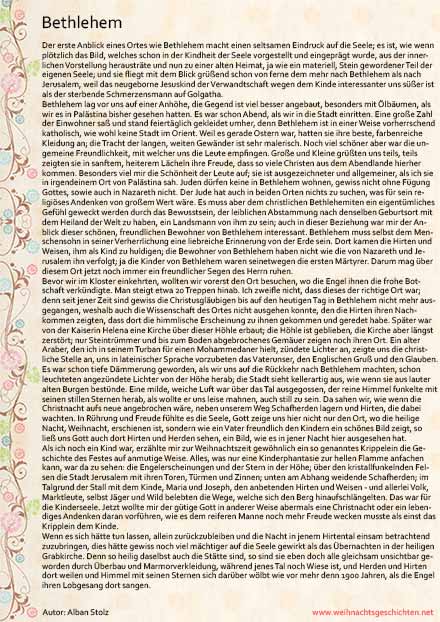 Bethlehem
Der erste Anblick eines Ortes wie Bethlehem macht einen seltsamen Eindruck auf die Seele; es ist, wie wenn
plötzlich das Bild, welches schon in der Kindheit der Seele vorgestellt und eingeprägt wurde, aus der inner-
lichen Vorstellung herausträte und nun zu einer alten Heimat, ja wie ein materiell, Stein gewordener Teil der
eigenen Seele; und sie fliegt mit dem Blick grüßend schon von ferne dem mehr nach Bethlehem als nach
Jerusalem, weil das neugeborne Jesuskind der Verwandtschaft wegen dem Kinde interessanter uns süßer ist
als der sterbende Schmerzensmann auf Golgatha.
Bethlehem lag vor uns auf einer Anhöhe, die Gegend ist viel besser angebaut, besonders mit Ölbäumen, als
wir es in Palästina bisher gesehen hatten. Es war schon Abend, als wir in die Stadt einritten. Eine große Zahl
der Einwohner saß und stand feiertäglich gekleidet umher, denn Bethlehem ist in einer Weise vorherrschend
katholisch, wie wohl keine Stadt im Orient. Weil es gerade Ostern war, hatten sie ihre beste, farbenreiche
Kleidung an; die Tracht der langen, weiten Gewänder ist sehr malerisch. Noch viel schöner aber war die un-
gemeine Freundlichkeit, mit welcher uns die Leute empfingen. Große und Kleine grüßten uns teils, teils
zeigten sie in sanftem, heiterem Lächeln ihre Freude, dass so viele Christen aus dem Abendlande hierher
kommen. Besonders viel mir die Schönheit der Leute auf; sie ist ausgezeichneter und allgemeiner, als ich sie
in irgendeinem Ort von Palästina sah. Juden dürfen keine in Bethlehem wohnen, gewiss nicht ohne Fügung
Gottes, sowie auch in Nazareth nicht. Der Jude hat auch in beiden Orten nichts zu suchen, was für sein re-
ligiöses Andenken von großem Wert wäre. Es muss aber dem christlichen Bethlehemiten ein eigentümliches
Gefühl geweckt werden durch das Bewusstsein, der leiblichen Abstammung nach denselben Geburtsort mit
dem Heiland der Welt zu haben, ein Landsmann von ihm zu sein; auch in dieser Beziehung war mir der An-
blick dieser schönen, freundlichen Bewohner von Bethlehem interessant. Bethlehem muss selbst dem Men-
schensohn in seiner Verherrlichung eine liebreiche Erinnerung von der Erde sein. Dort kamen die Hirten und
Weisen, ihm als Kind zu huldigen; die Bewohner von Bethlehem haben nicht wie die von Nazareth und Je-
rusalem ihn verfolgt; ja die Kinder von Bethlehem waren seinetwegen die ersten Märtyrer. Darum mag über
diesem Ort jetzt noch immer ein freundlicher Segen des Herrn ruhen.
Bevor wir im Kloster einkehrten, wollten wir vorerst den Ort besuchen, wo die Engel ihnen die frohe Bot-
schaft verkündigte. Man steigt etwa 20 Treppen hinab. Ich zweifle nicht, dass dieses der richtige Ort war;
denn seit jener Zeit sind gewiss die Christusgläubigen bis auf den heutigen Tag in Bethlehem nicht mehr aus-
gegangen, weshalb auch die Wissenschaft des Ortes nicht ausgehen konnte, den die Hirten ihren Nach-
kommen zeigten, dass dort die himmlische Erscheinung zu ihnen gekommen und geredet habe. Später war
von der Kaiserin Helena eine Kirche über dieser Höhle erbaut; die Höhle ist geblieben, die Kirche aber längst
zerstört; nur Steintrümmer und bis zum Boden abgebrochenes Gemäuer zeigen noch ihren Ort. Ein alter
Araber, den ich in seinem Turban für einen Mohammedaner hielt, zündete Lichter an, zeigte uns die christ-
liche Stelle an, uns in lateinischer Sprache vorzubeten das Vaterunser, den Englischen Gruß und den Glauben.
Es war schon tiefe Dämmerung geworden, als wir uns auf die Rückkehr nach Bethlehem machten, schon
leuchteten angezündete Lichter von der Höhe herab; die Stadt sieht kellerartig aus, wie wenn sie aus lauter
alten Burgen bestünde. Eine milde, weiche Luft war über das Tal ausgegossen, der reine Himmel funkelte mit
seinen stillen Sternen herab, als wollte er uns leise mahnen, auch still zu sein. Da sahen wir, wie wenn die
Christnacht aufs neue angebrochen wäre, neben unserem Weg Schafherden lagern und Hirten, die dabei
wachten. In Rührung und Freude fühlte es die Seele, Gott zeige uns hier nicht nur den Ort, wo die heilige
Nacht, Weihnacht, erschienen ist, sondern wie ein Vater freundlich den Kindern ein schönes Bild zeigt, so
ließ uns Gott auch dort Hirten und Herden sehen, ein Bild, wie es in jener Nacht hier ausgesehen hat.
Als ich noch ein Kind war, erzählte mir zur Weihnachtszeit gewöhnlich ein so genanntes Krippelein die Ge-
schichte des Festes auf anmutige Weise. Alles, was nur eine Kinderphantasie zur hellen Flamme anfachen
kann, war da zu sehen: die Engelerscheinungen und der Stern in der Höhe; über den kristallfunkelnden Fel-
sen die Stadt Jerusalem mit ihren Toren, Türmen und Zinnen; unten am Abhang weidende Schafherden; im
Talgrund der Stall mit dem Kinde, Maria und Joseph, den anbetenden Hirten und Weisen - und allerlei Volk,
Marktleute, selbst Jäger und Wild belebten die Wege, welche sich den Berg hinaufschlängelten. Das war für
die Kinderseele. Jetzt wollte mir der gütige Gott in anderer Weise abermals eine Christnacht oder ein leben-
diges Andenken daran vorführen, wie es dem reiferen Manne noch mehr Freude wecken musste als einst das
Kripplein dem Kinde.
Wenn es sich hätte tun lassen, allein zurückzubleiben und die Nacht in jenem Hirtental einsam betrachtend
zuzubringen, dies hätte gewiss noch viel mächtiger auf die Seele gewirkt als das Übernachten in der heiligen
Grabkirche. Denn so heilig daselbst auch die Stätte sind, so sind sie eben doch alle gleichsam unsichtbar ge-
worden durch Überbau und Marmorverkleidung, während jenes Tal noch Wiese ist, und Herden und Hirten
dort weilen und Himmel mit seinen Sternen sich darüber wölbt wie vor mehr denn 1900 Jahren, als die Engel
ihren Lobgesang dort sangen.
Autor: Alban Stolz
www.weihnachtsgeschichten.net